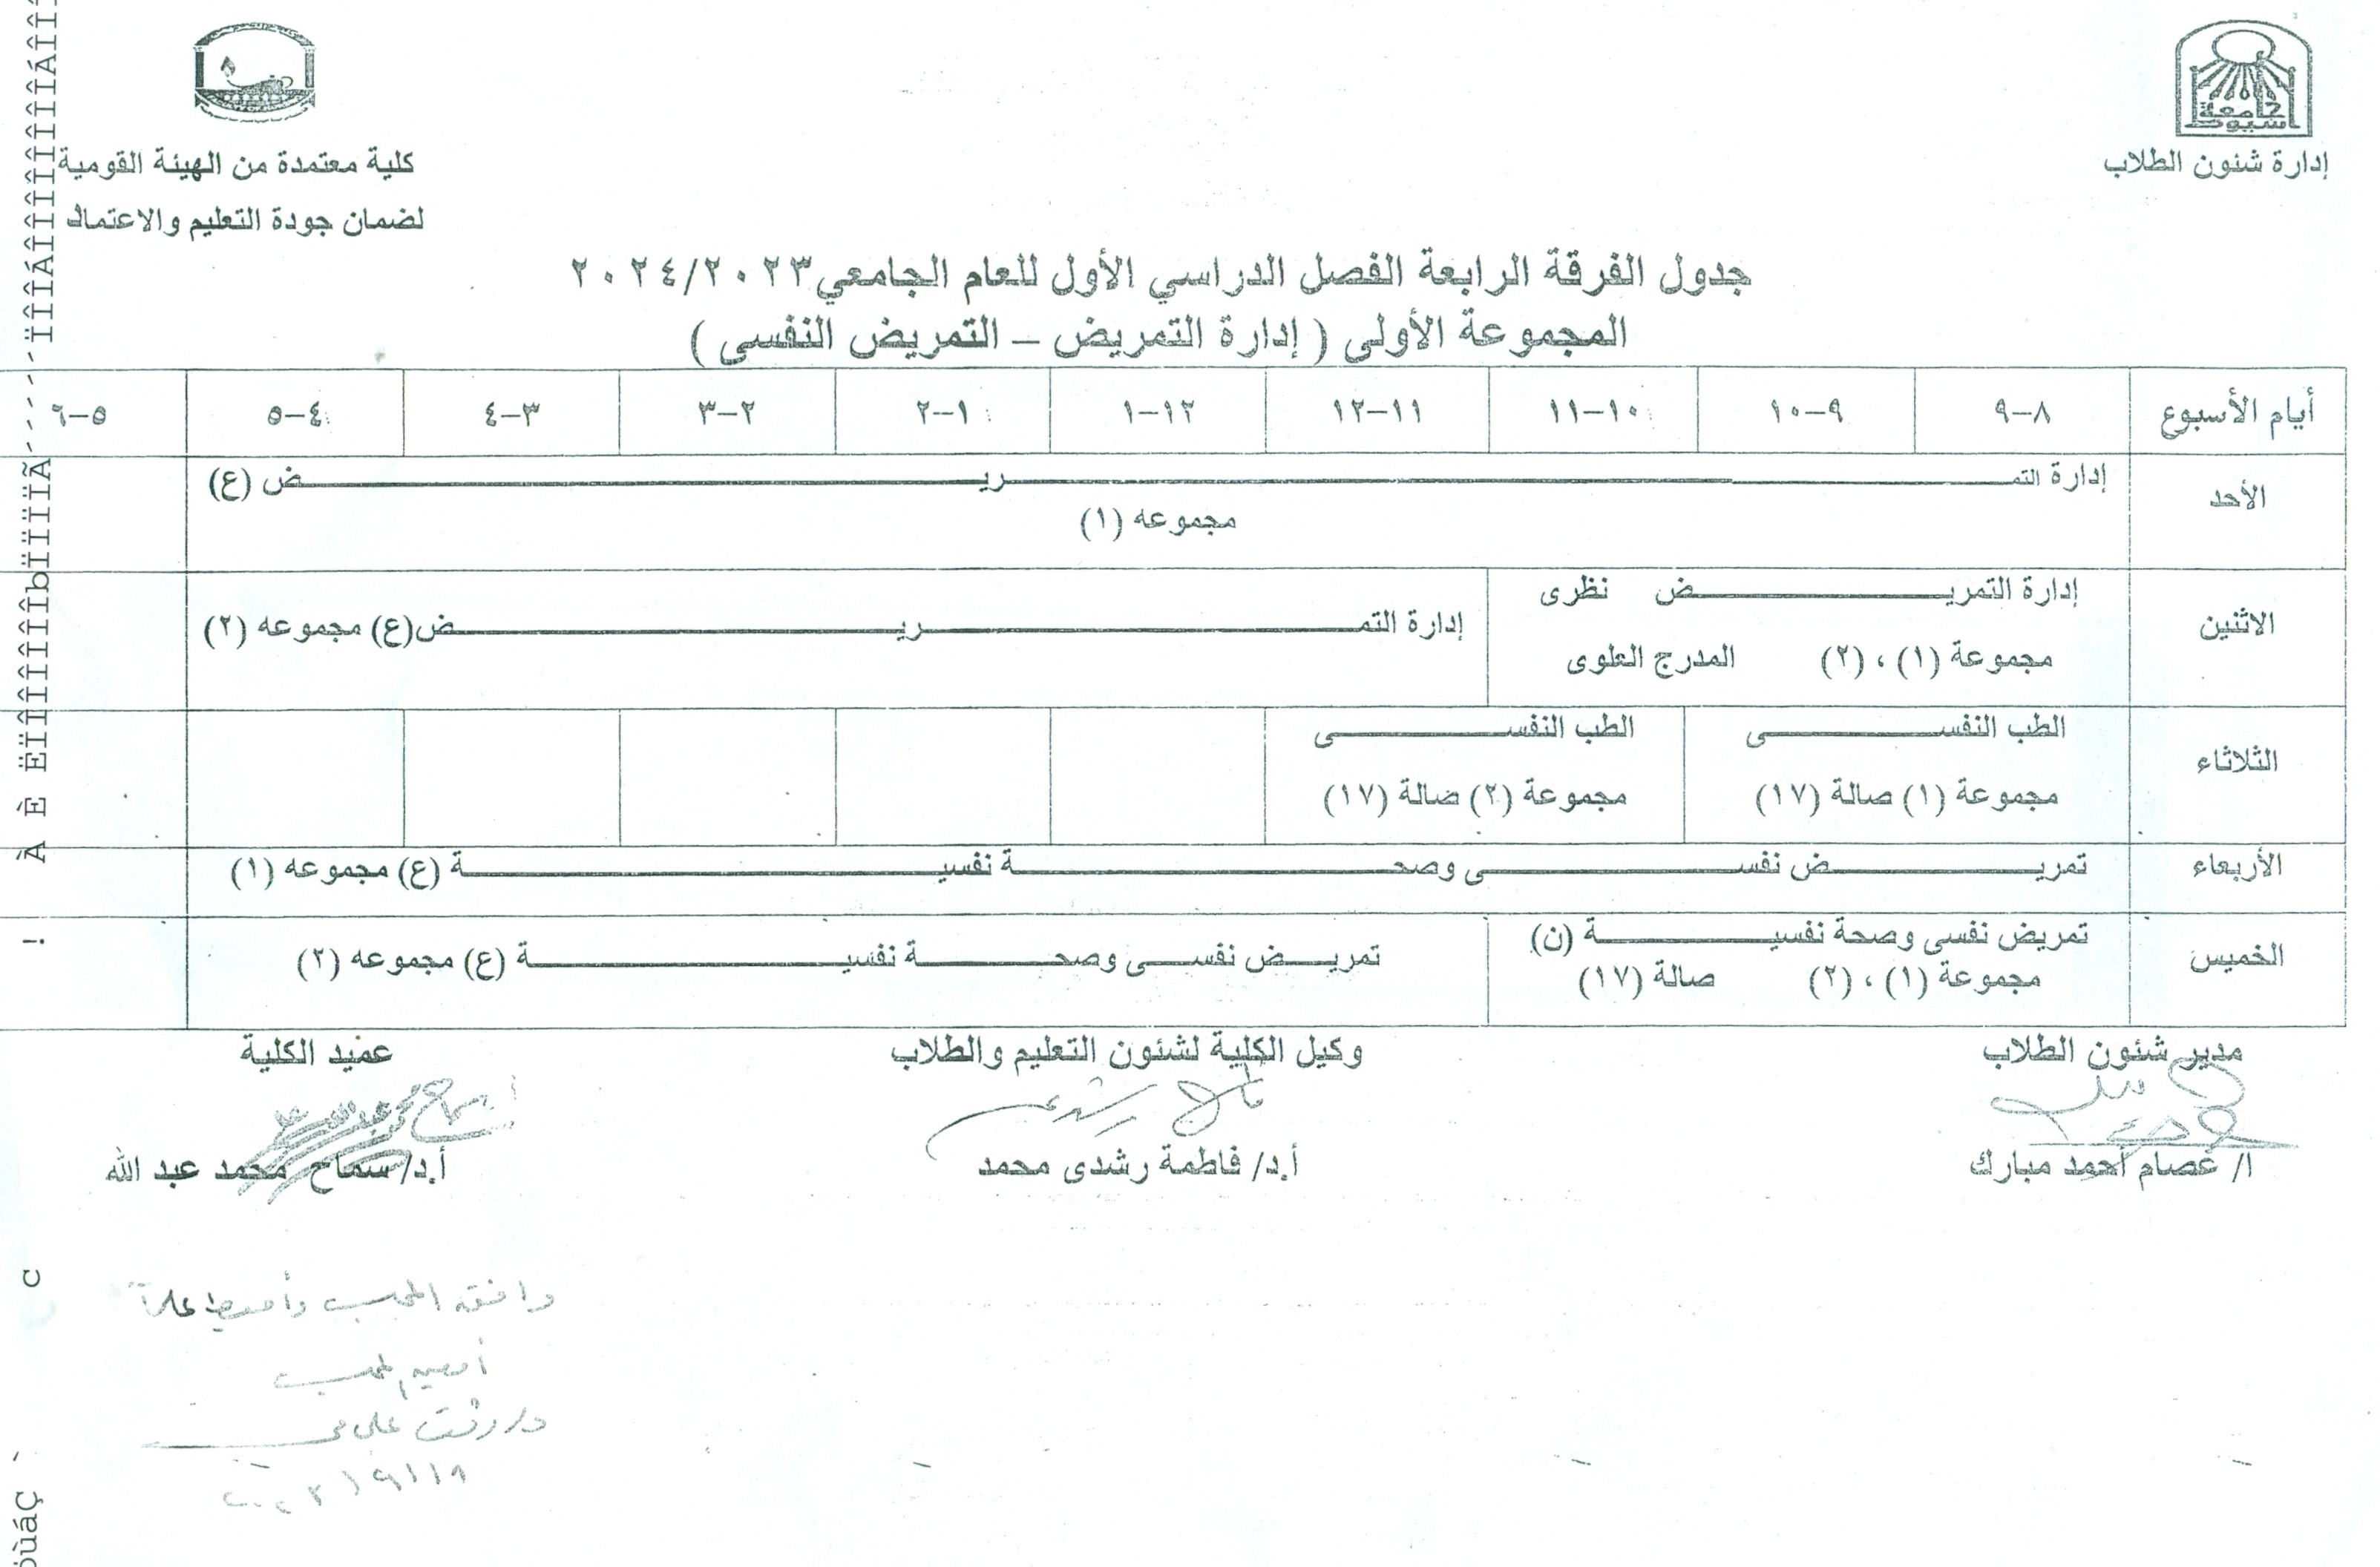 جامعة
أسيوط
إدارة شئون الطلاب
كلية معتمدة من الهيئة القومية
لضمان جودة التعليم والاعتماد
جدول الفرقة الرابعة الفصل الدراسي الأول للعام الجامعي ٢٠٢٤/٢٠٢٣
المجموعة الأولى ( إدارة التمريض – التمريض النفسى )
أيام الأسبوع ٨–٩ ٩–١٠ ١٠–١١ ١١–١٢ ١٢–١ ١–٢ ٢–٣ ٣–٤ ٤–٥ ٥–٦
الأحد
إدارة التمـــــريـــــض (ع)
مجموعه (١)
الاثنين
إدارة التمريـــــض نظرى
مجموعة (١) ، (٢) المدرج العلوى
إدارة التمـــــريـــــض(ع) مجموعه (٢)
الثلاثاء
الطب النفســـــى
مجموعة (١) صالة (١٧)
الطب النفســـــى
مجموعة (٢) صالة (١٧)
الأربعاء
تمريـــــض نفســـــى وصحـــــة نفسيـــــة (ع) مجموعه (١)
الخميس
تمريض نفسى وصحة نفسيـــــة (ن)
مجموعة (١) ، (٢) صالة (١٧)
تمريـــض نفســـى وصحـــــة نفسيـــــة (ع) مجموعه (٢)
مدير شئون الطلاب
ا/ عصام أحمد مبارك
وكيل الكلية لشئون التعليم والطلاب
أ.د/ فاطمة رشدى محمد
عميد الكلية
أ.د/ سماح محمد عبد الله